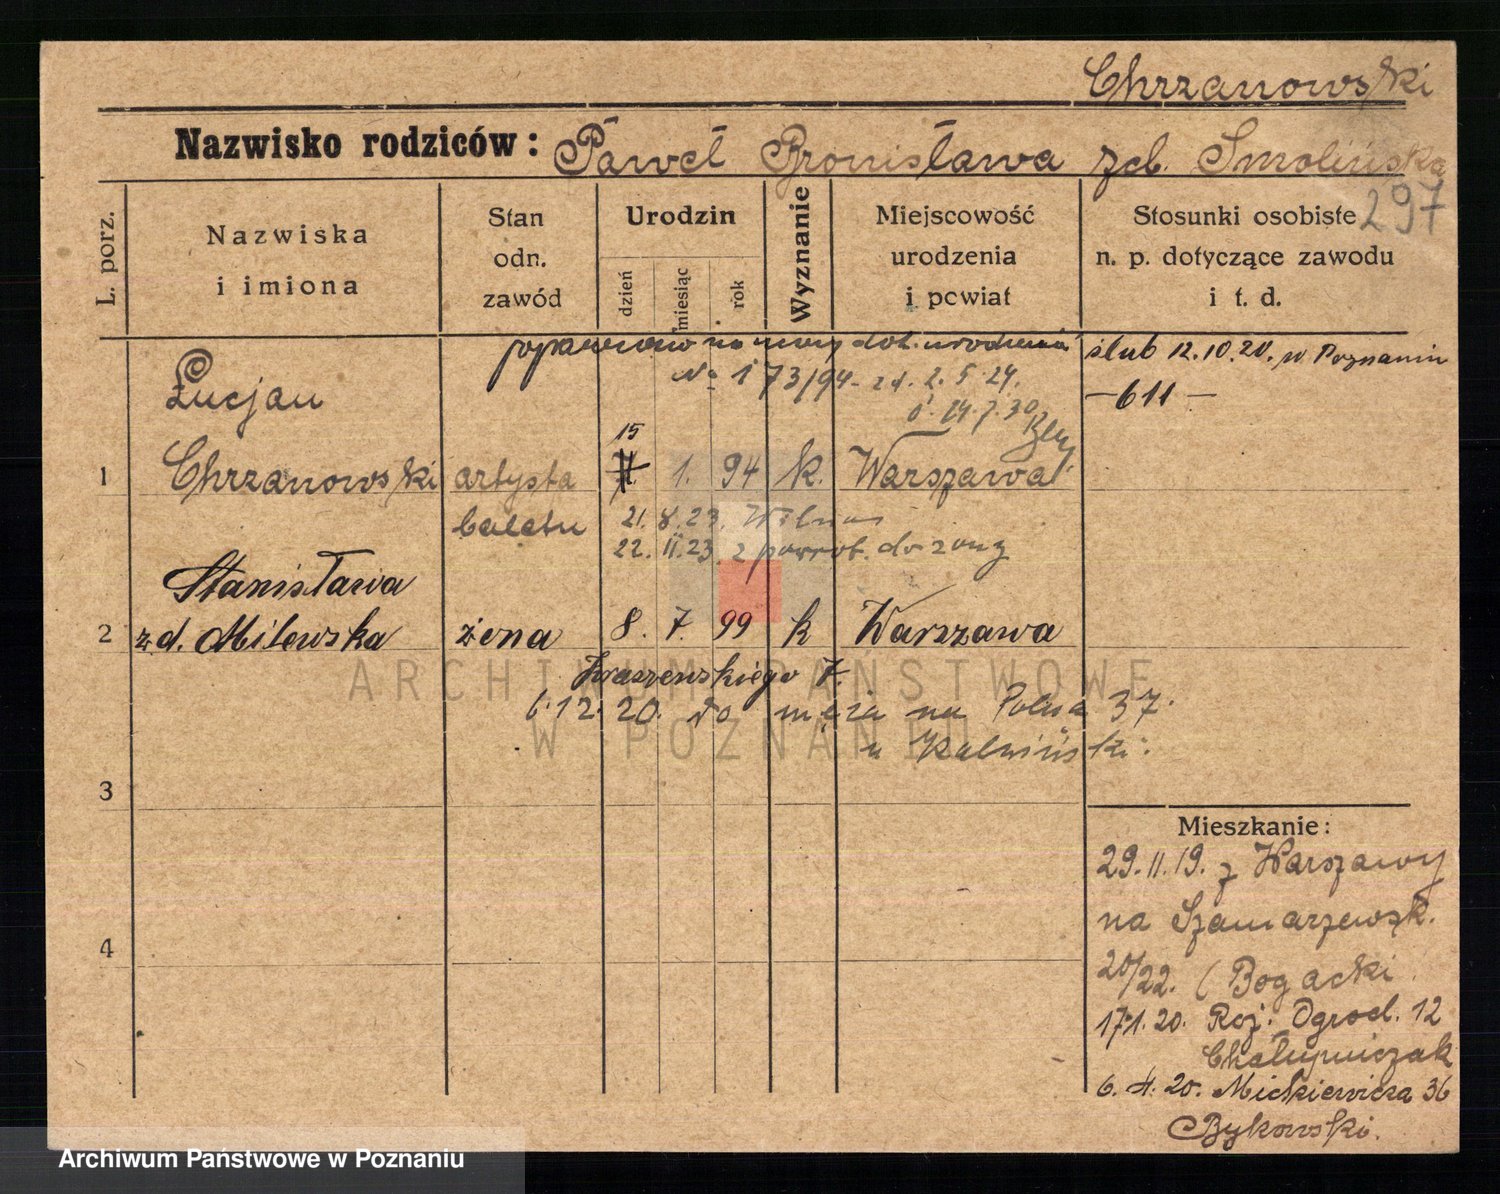 Chrzanowski
Nazwisko rodziców: Paweł Bronisława zd. Smolińska
297
L. porz.
Nazwiska
i imiona
Stan
odn.
zawód
Urodzin
dzień
miesiąc
rok
Wyznanie
Miejscowość
urodzenia
i powiat
Stosunki osobiste
n. p. dotyczące zawodu
i t. d.
poprawiono na mocy dok. urodzenia
No 173/94 zd. 2. 5. 24.
14.7.30
ślub 12.10.20. w Poznaniu
— 611 —
Łucjan
15
1 Chrzanowski artysta 7. 1. 94 k. Warszawa
baletu 21. 8. 23. Wilno
22. 11. 23. z powrot. do żony
Stanisława
2 z d. Milewska żona 8. 7. 99 k Warszawa
Kraszewskiego 7.
6.12.20. do męża na Polną 37.
u
3
4
Mieszkanie:
29.11.19. z Warszawy
na Szamarzewsk.
20/22. (Bogacki
17.1.20. Ogrod. 12
Chałupniczak
6. 4. 20. Mickiewicza 36
Bykowski.
ARCHIWUM PAŃSTWOWE
W POZNANIU
Archiwum Państwowe w Poznaniu